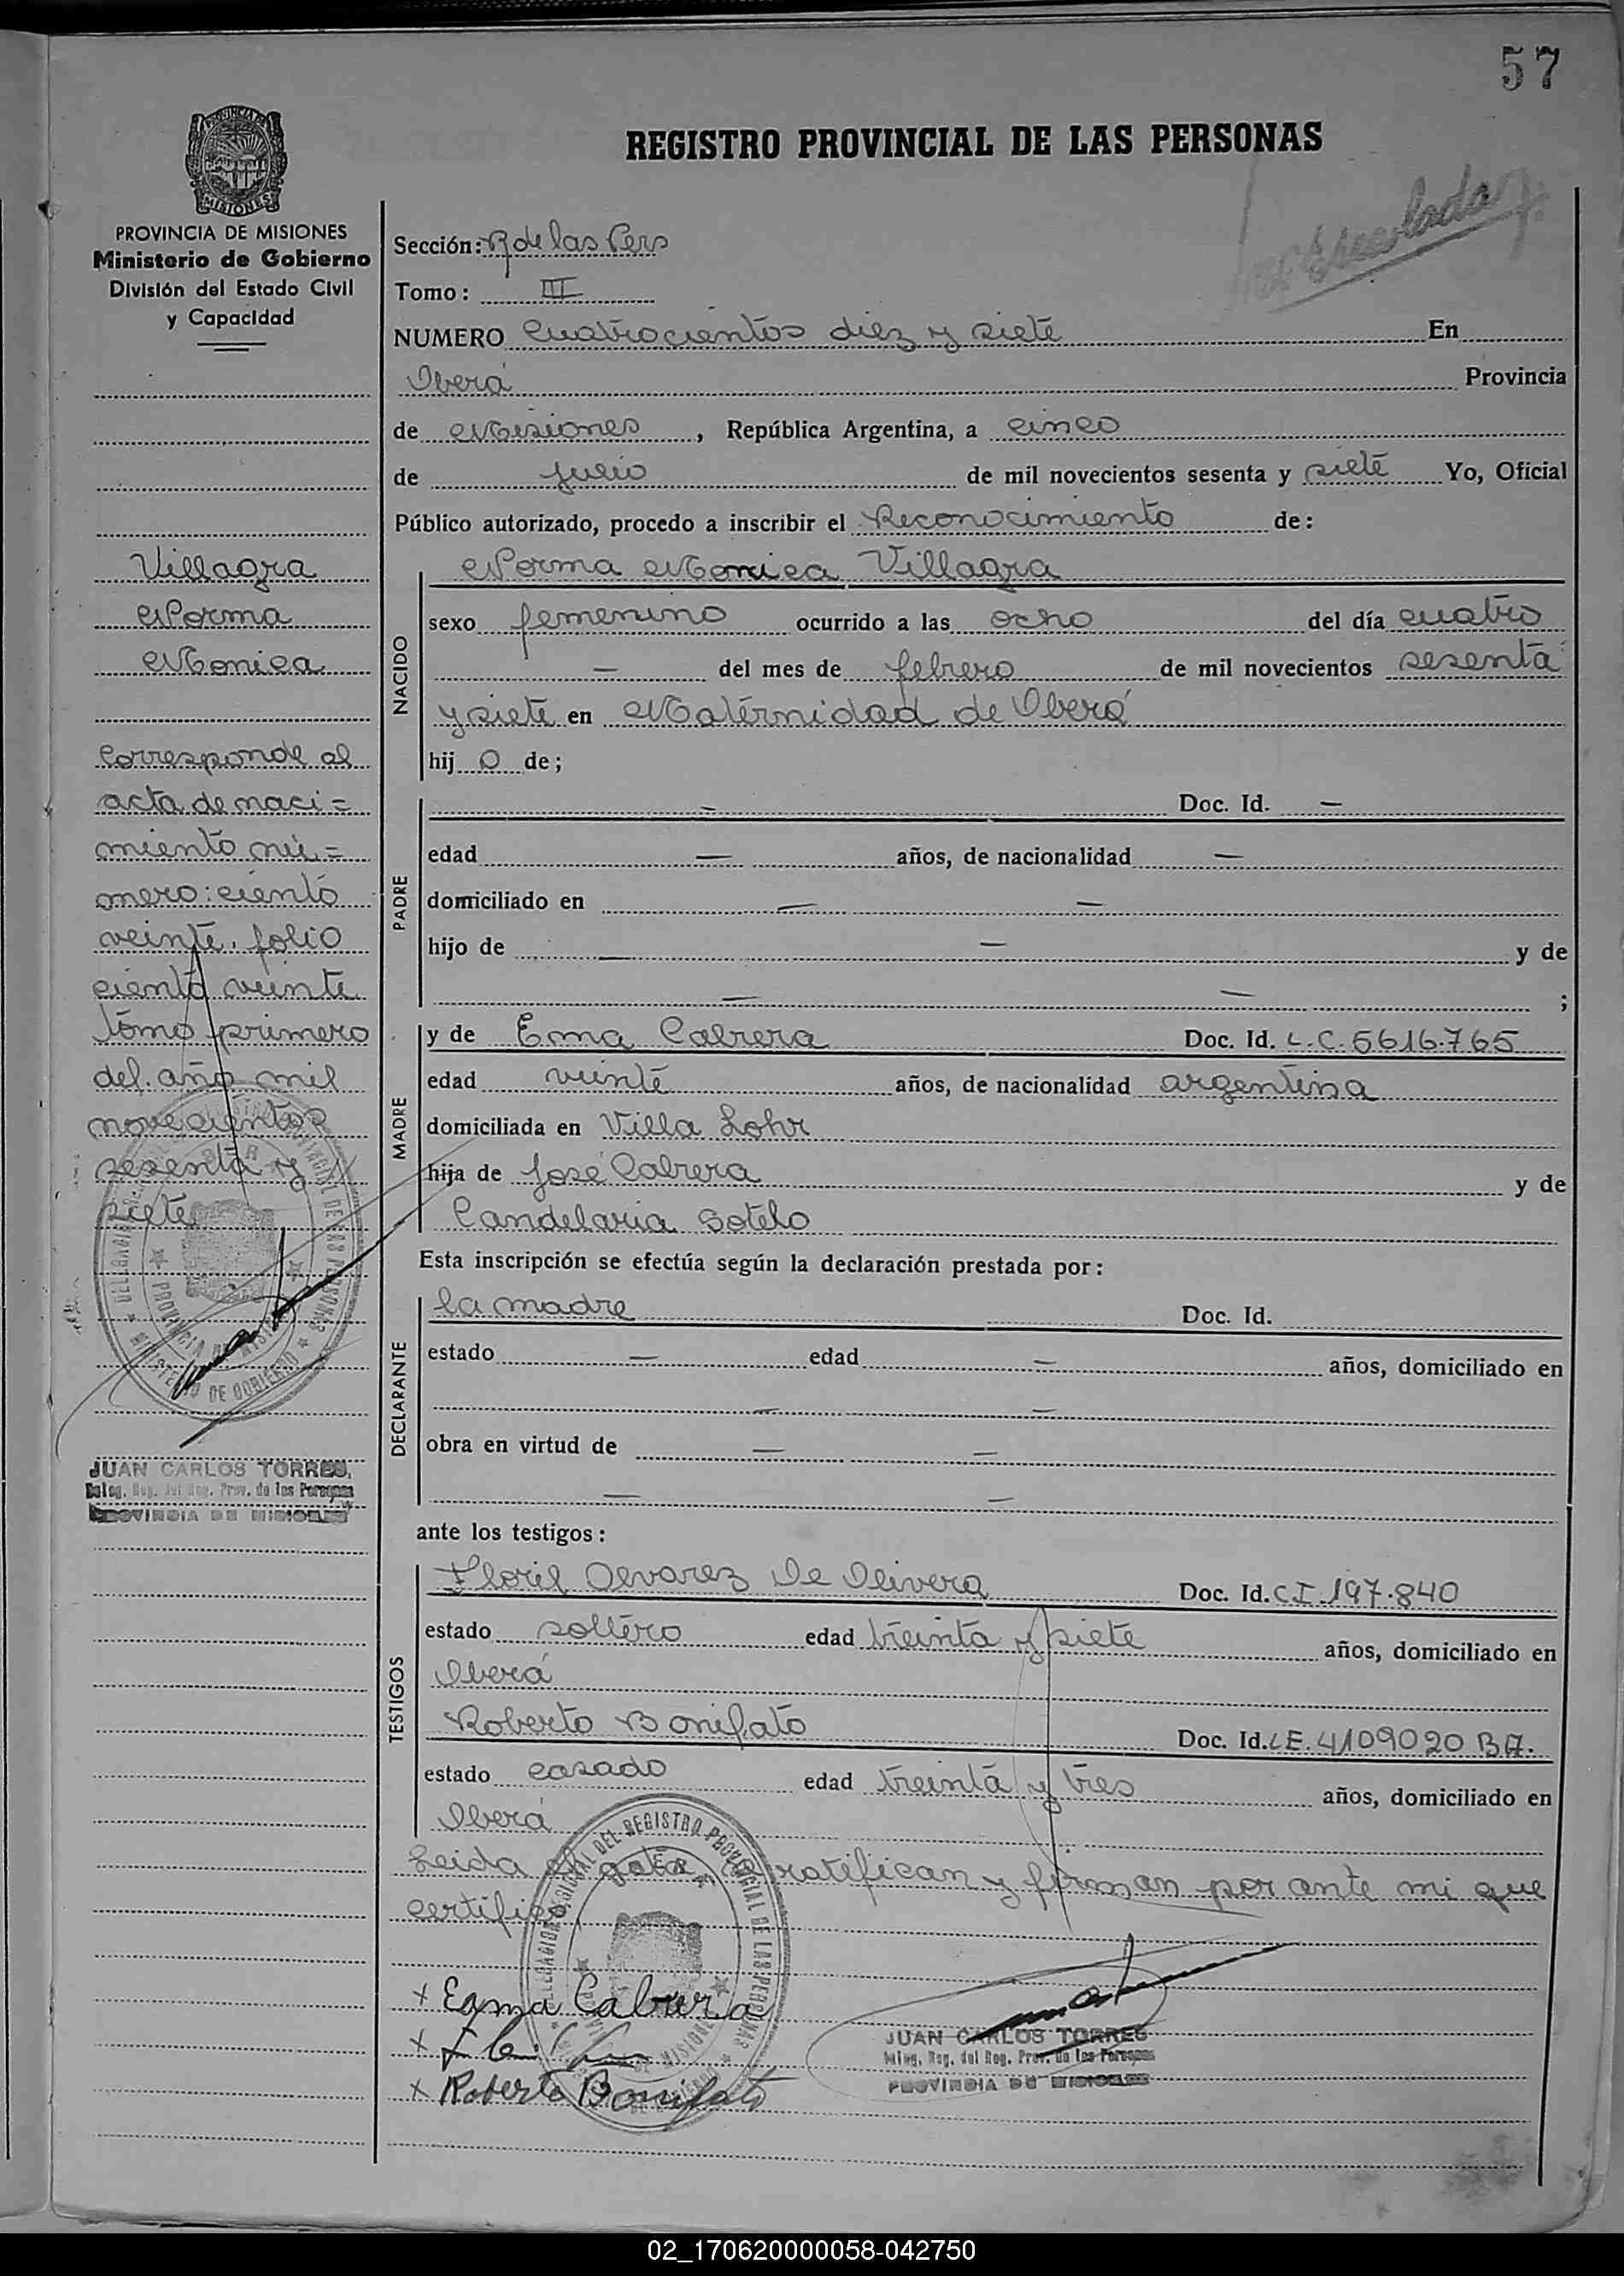 57
REGISTRO PROVINCIAL DE LAS PERSONAS
PROVINCIA DE MISIONES
Ministerio de Gobierno
División del Estado Civil
y Capacidad
Villagra
Norma
Monica
Corresponde al
acta de naci=
miento nú=
mero: ciento
veinte, folio
ciento veinte
tomo primero
del año mil
novecientos
sesenta y
siete
JUAN CARLOS TORRES
Deleg. Reg. del Reg. Prov. de las Personas
PROVINCIA DE MISIONES
Sección: R de las Pers
Tomo: III
NUMERO Cuatrocientos diez y siete En
Oberá Provincia
de Misiones, República Argentina, a cinco
de julio de mil novecientos sesenta y siete Yo, Oficial
Público autorizado, procedo a inscribir el Reconocimiento de:
NACIDO
Norma Monica Villagra
sexo femenino ocurrido a las ocho del día cuatro
— del mes de febrero de mil novecientos sesenta
y siete en Maternidad de Oberá
hij o de;
PADRE
— Doc. Id. —
edad — años, de nacionalidad —
domiciliado en — —
hijo de — — y de
— — ;
MADRE
y de Ema Cabrera Doc. Id. L.C. 5616.765
edad veinte años, de nacionalidad argentina
domiciliada en Villa Lohr
hija de José Cabrera y de
Candelaria Sotelo
Esta inscripción se efectúa según la declaración prestada por:
DECLARANTE
la madre Doc. Id.
estado — edad — años, domiciliado en
— —
obra en virtud de — —
— —
ante los testigos:
TESTIGOS
Alvarez De Olivera Doc. Id. C.I. 197.840
estado soltero edad treinta y siete años, domiciliado en
Oberá
Roberto Bonifato Doc. Id. L.E. 4109020 BA.
estado casado edad treinta y tres años, domiciliado en
Oberá
Leida el acta la ratifican y firman por ante mi que
certifico.
+ Emma Cabrera
+ Roberto Bonifato
JUAN CARLOS TORRES
Deleg. Reg. del Reg. Prov. de las Personas
PROVINCIA DE MISIONES
DELEGACION REGIONAL DEL REGISTRO PROVINCIAL DE LAS PERSONAS
02_170620000058-042750